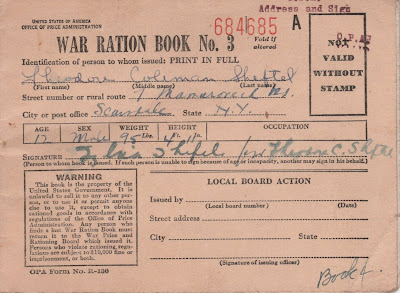 Address and Sign
UNITED STATES OF AMERICA
OFFICE OF PRICE ADMINISTRATION
684685 A
WAR RATION BOOK No. 3
Void if
altered
O.P.A.
NOT
VALID
WITHOUT
STAMP
Identification of person to whom issued: PRINT IN FULL
Theodore Coleman Sheftel
(First name) (Middle name) (Last name)
Street number or rural route 1
City or post office Scarsdale State N.Y.
AGE SEX WEIGHT HEIGHT OCCUPATION
12 Male 95 Lbs. 4 Ft. 11 In.
SIGNATURE Sheftel for Theodore C. Sheftel
(Person to whom book is issued. If such person is unable to sign because of age or incapacity, another may sign in his behalf.)
WARNING
This book is the property of the
United States Government. It is
unlawful to sell it to any other per-
son, or to use it or permit anyone
else to use it, except to obtain
rationed goods in accordance with
regulations of the Office of Price
Administration. Any person who
finds a lost War Ration Book must
return it to the War Price and
Rationing Board which issued it.
Persons who violate rationing regula-
tions are subject to $10,000 fine or
imprisonment, or both.
LOCAL BOARD ACTION
Issued by
(Local board number) (Date)
Street address
City State
(Signature of issuing officer)
OPA Form No. R-130
Book 4.